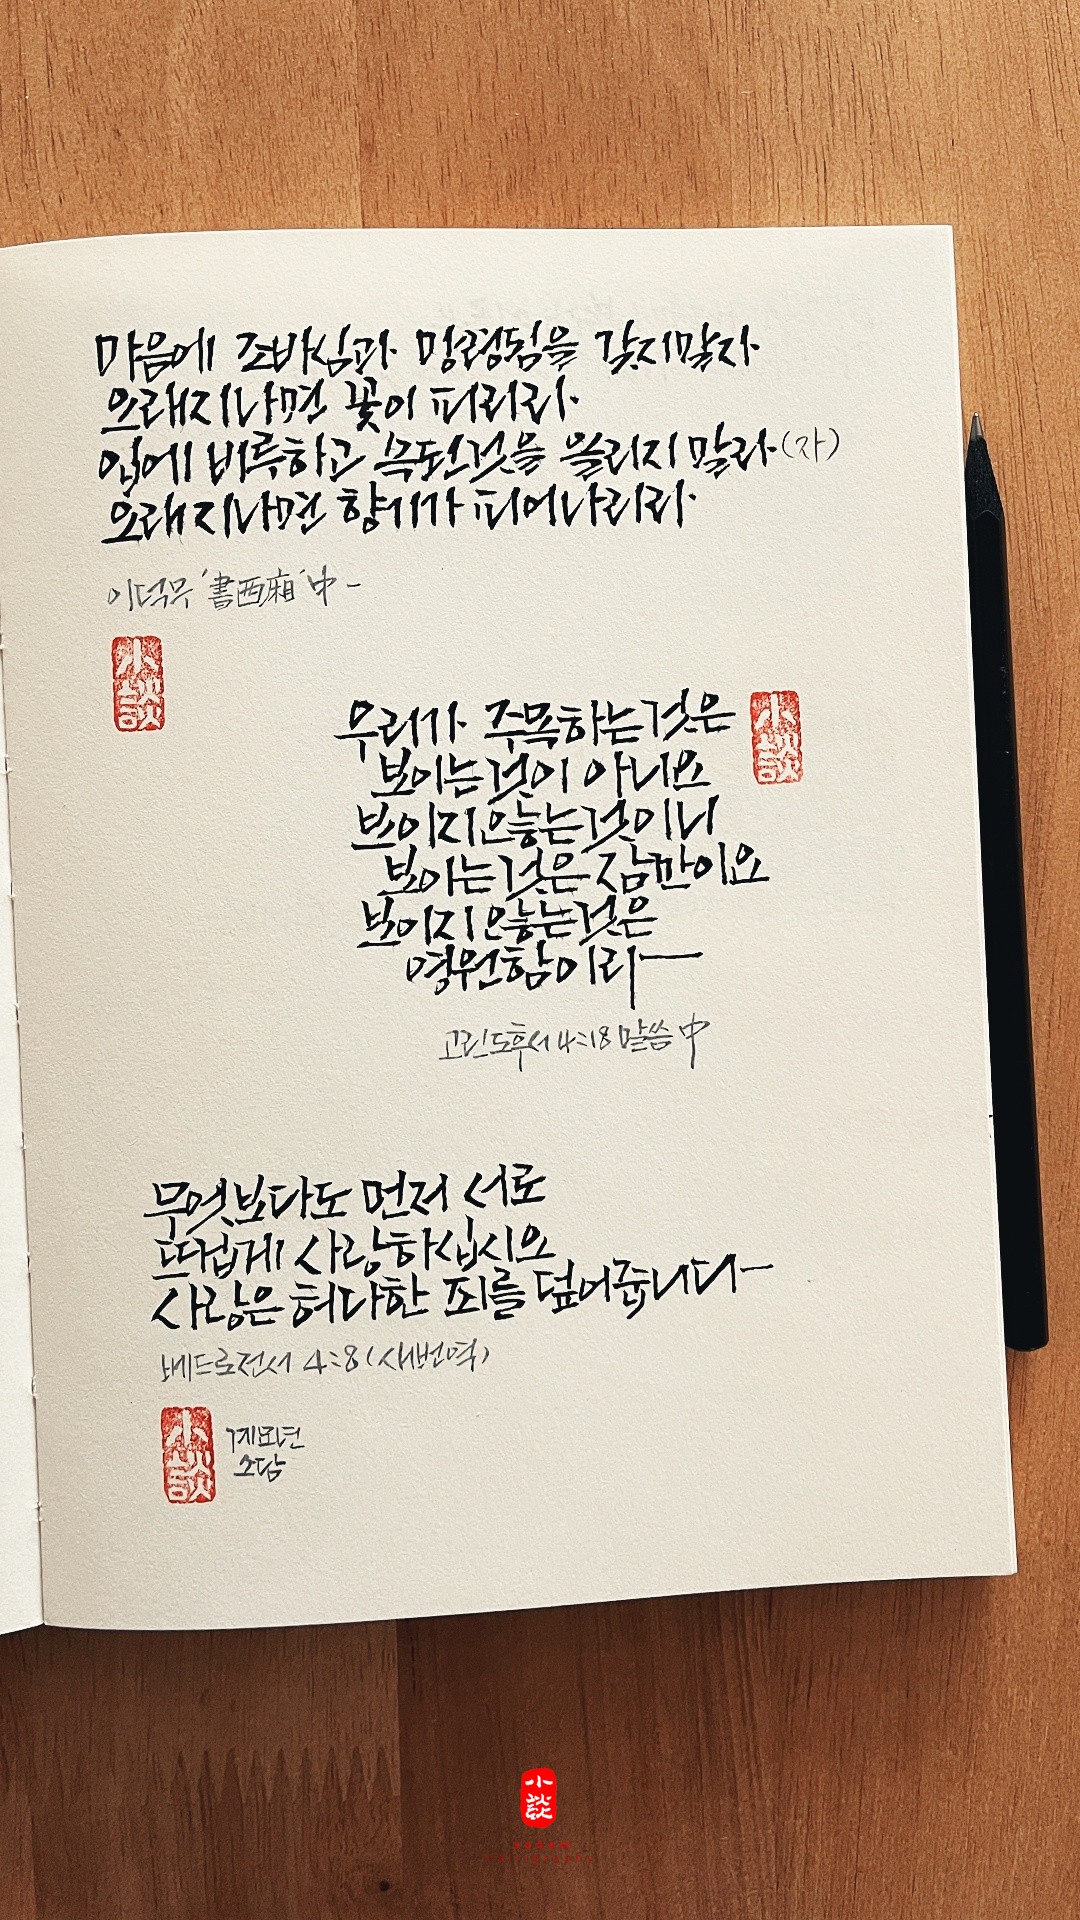 마음에 조바심과 망령됨을 갖지말자
오래지나면 꽃이 피리라
입에 비루하고 속된것을 올리지 말라(자)
오래지나면 향기가 피어나리라
이덕무 '書西廂' 中 -
小談
우리가 주목하는것은
小談
보이는것이 아니요
보이지않는것이니
보이는것은 잠깐이요
보이지않는것은
영원함이라
고린도후서 4:18 말씀 中
무엇보다도 먼저 서로
뜨겁게 사랑하십시오
사랑은 허다한 죄를 덮어줍니다
베드로전서 4:8 (새번역)
小談
계묘년
소담
小談